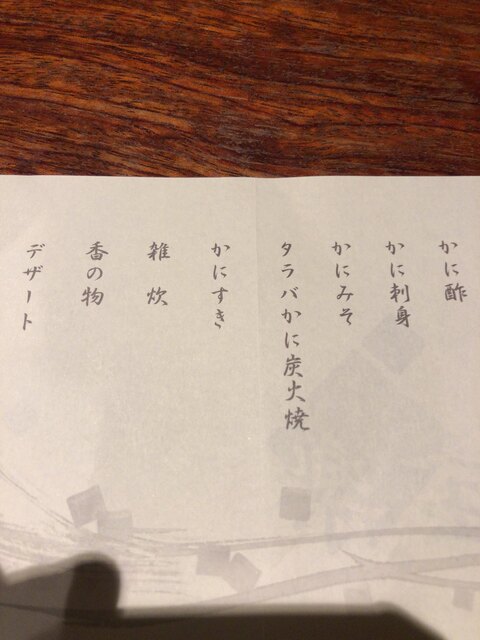 かに酢
かに刺身
かにみそ
タラバかに炭火焼
かにすき
雑炊
香の物
デザート